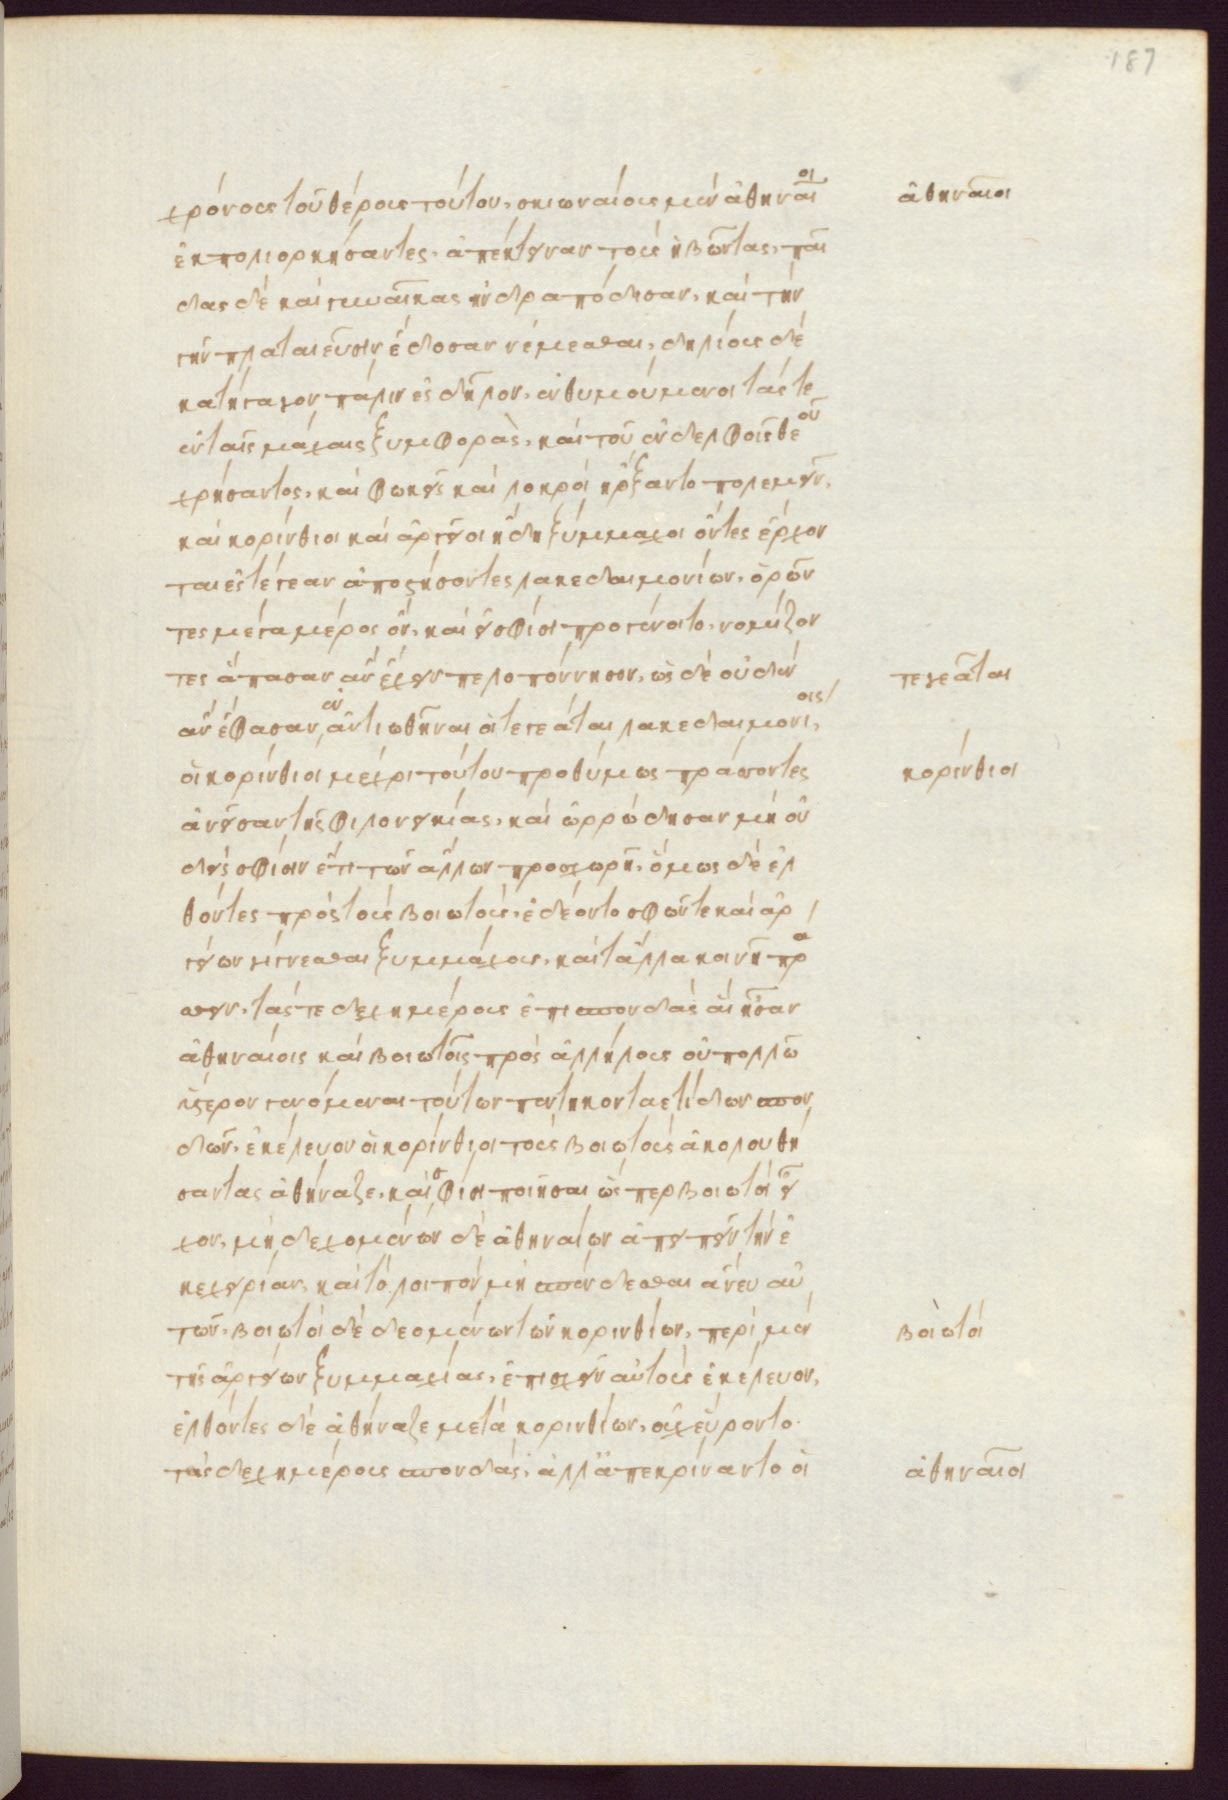 187
χρόνους τοῦ θέρους τούτου, σκιωναίους μὲν ἀθηναῖοι
ἀθηναῖοι
ἐκπολιορκήσαντες, ἀπέκτειναν τοὺς ἡβῶντας, παῖ
δας δὲ καὶ γυναῖκας ἠνδραπόδισαν, καὶ τὴν
γῆν πλαταιεῦσιν ἔδοσαν νέμεσθαι, δηλίους δὲ
κατήγαγον πάλιν ἐς δῆλον, ἐνθυμούμενοι τάς τε
ἐν ταῖς μάχαις ξυμφορὰς, καὶ τοῦ ἐν δελφοῖς θεοῦ
χρήσαντος, καὶ φωκεῖς καὶ λοκροὶ ἤρξαντο πολεμεῖν,
καὶ κορίνθιοι καὶ ἀργεῖοι ἤδη ξύμμαχοι ὄντες ἔρχον
ται ἐς τέγεαν ἀποστήσοντες λακεδαιμονίων, ὁρῶν
τες μέγα μέρος ὂν, καὶ εἰ σφίσι προσγένοιτο, νομίζον
τες ἅπασαν ἂν ἔχειν πελοπόννησον, ὡς δὲ οὐδὲν
τεγεᾶται
ἂν ἔφασαν ἐναντιωθῆναι οἱ τεγεάται λακεδαιμονίοις,
οἱ κορίνθιοι μέχρι τούτου προθύμως πράσσοντες
κορίνθιοι
ἀνεῖσαν τῆς φιλονεικίας, καὶ ὠρρώδησαν μὴ οὐ
δεὶς σφίσιν ἔτι τῶν ἄλλων προσχωρῇ, ὅμως δὲ ἐλ
θόντες πρὸς τοὺς βοιωτοὺς, ἐδέοντο σφῶν τε καὶ ἀρ
γείων γίγνεσθαι ξυμμάχους, καὶ τἄλλα κοινῇ πρά
σσειν, τάς τε δεχημέρους ἐπισπονδὰς αἳ ἦσαν
ἀθηναίοις καὶ βοιωτοῖς πρὸς ἀλλήλους οὐ πολλῶ
ὕστερον γενόμεναι τούτων πεντηκονταετίδων σπον
δῶν, ἐκέλευον οἱ κορίνθιοι τοὺς βοιωτοὺς ἀκολουθή
σαντας ἀθήναζε, καὶ σφίσι ποιῆσαι ὥσπερ βοιωτοὶ εἶ
χον, μὴ δεχομένων δὲ ἀθηναίων ἀπειπεῖν τὴν ἐ
κεχειρίαν, καὶ τὸ λοιπὸν μὴ σπένδεσθαι ἄνευ αὐ
τῶν, βοιωτοὶ δὲ δεομένων τῶν κορινθίων, περὶ μὲν
βοιωτοί
τῆς ἀργείων ξυμμαχίας, ἐπισχεῖν αὐτοὺς ἐκέλευον,
ἐλθόντες δὲ ἀθήναζε μετὰ κορινθίων, οὐχ εὕροντο
τὰς δεχημέρους σπονδάς, ἀλλ' ἀπεκρίναντο οἱ
ἀθηναῖοι